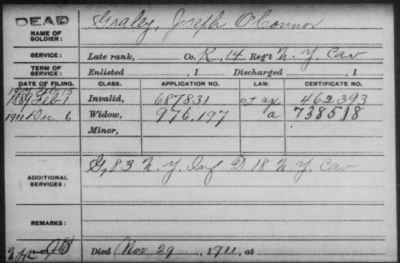 DEAD
NAME OF SOLDIER: Graley, Joseph O'Connor
SERVICE: Late rank, Co. K, 14 Reg't N.Y. Cav
TERM OF SERVICE: Enlisted , 1 Discharged , 1
DATE OF FILING. CLASS. APPLICATION NO. LAW. CERTIFICATE NO.
1889 Feb 1 Invalid, 687831 462,393
1911 Dec. 6 Widow, 976,197 a 738518
Minor,
ADDITIONAL SERVICES: G, 83 N.Y. Inf D 18 N.Y. Cav
REMARKS:
Died Nov. 29 , 1911, at